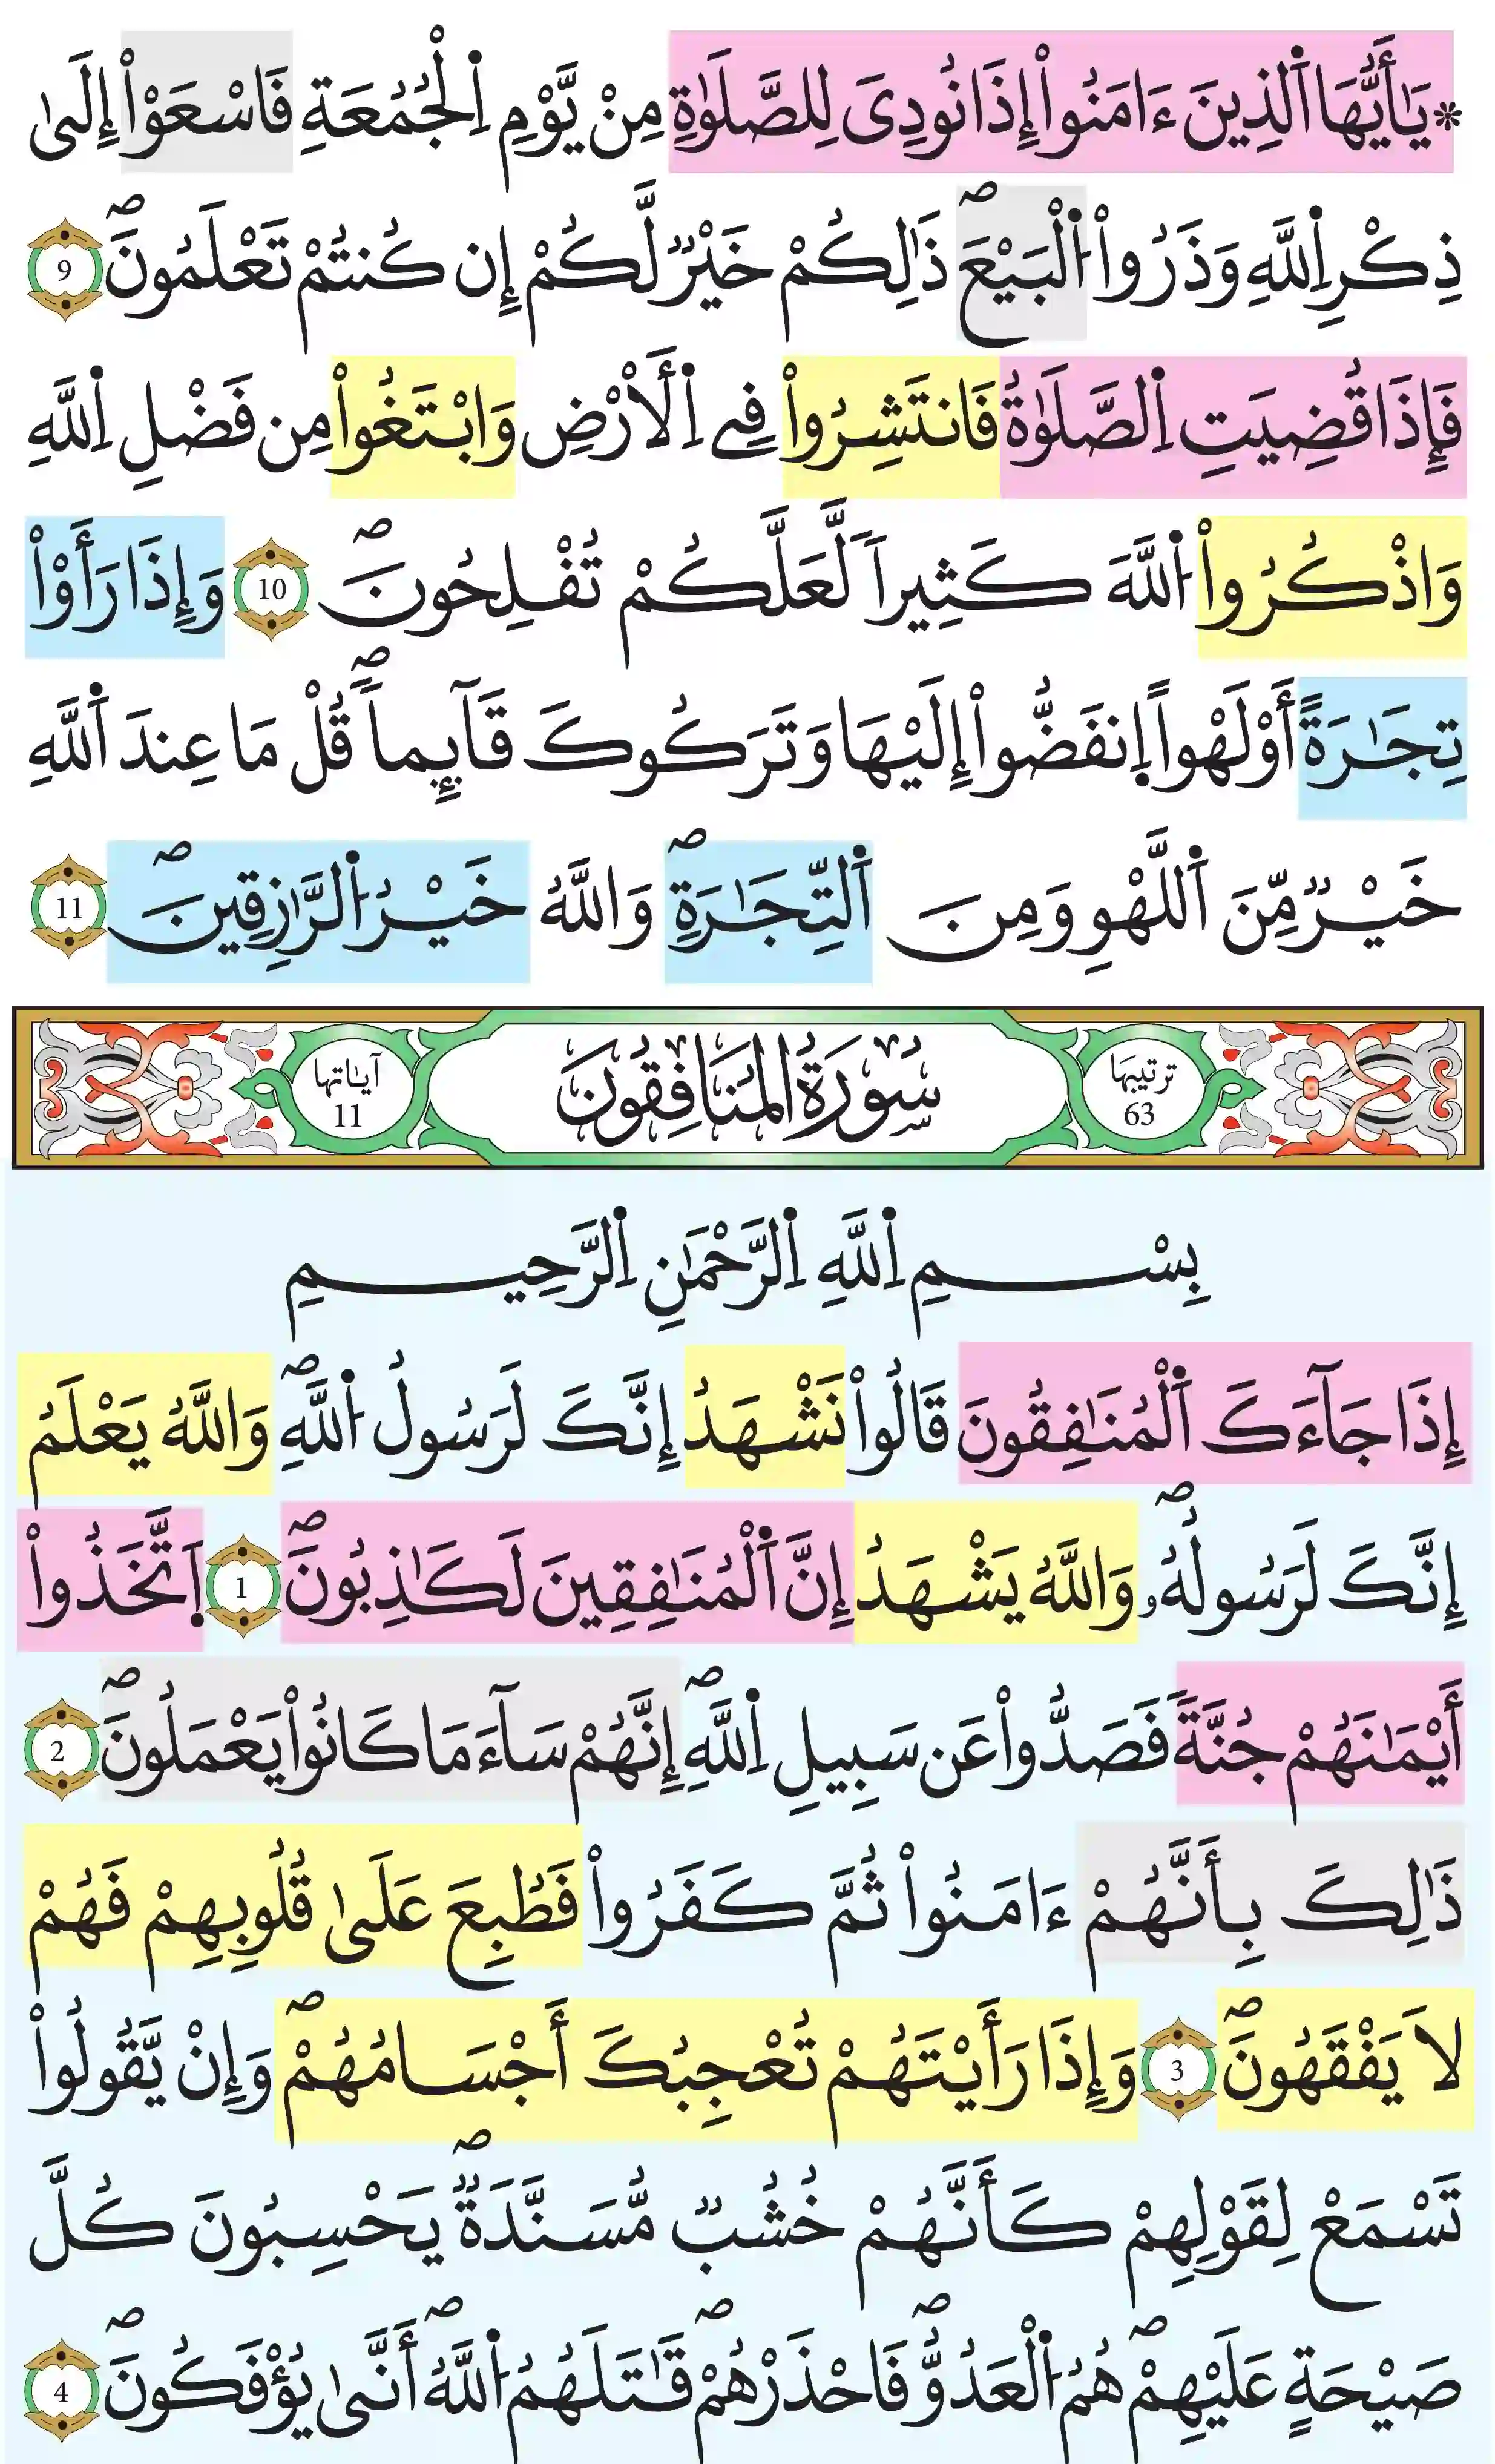 * يَٰأَيُّهَا اَ۬لذِينَ ءَامَنُواْ إِذَا نُودِيَ لِلصَّلَوٰةِ مِنْ يَّوْمِ اِ۬لْجُمُعَةِ فَاسْعَوْاْ إِلَىٰ
ذِكْرِ اِ۬للَّهِ وَذَرُواْ اُ۬لْبَيْعَۖ ذَٰلِكُمْ خَيْرٌ لَّكُمْ إِن كُنتُمْ تَعْلَمُونَۖ 9
فَإِذَا قُضِيَتِ اِ۬لصَّلَوٰةُ فَانتَشِرُواْ فِے اِ۬لَارْضِ وَابْتَغُواْ مِن فَضْلِ اِ۬للَّهِ
وَاذْكُرُواْ اُ۬للَّهَ كَثِيراً لَّعَلَّكُمْ تُفْلِحُونَۖ 10 وَإِذَا رَأَوْاْ
تِجَٰرَةً أَوْ لَهْواً اِ۪نفَضُّواْ إِلَيْهَا وَتَرَكُوكَ قَآئِماًۖ قُلْ مَا عِندَ اَ۬للَّهِ
خَيْرٌ مِّنَ اَ۬للَّهْوِ وَمِنَ اَ۬لتِّجَٰرَةِۖ وَاللَّهُ خَيْرُ اُ۬لرَّٰزِقِينَۖ 11
ترتيبها 63 سُورَةُ المُنَافِقُونَ آياتها 11
بِسْمِ اِ۬للَّهِ اِ۬لرَّحْمَٰنِ اِ۬لرَّحِيمِ
إِذَا جَآءَكَ اَ۬لْمُنَٰفِقُونَ قَالُواْ نَشْهَدُ إِنَّكَ لَرَسُولُ اُ۬للَّهِۖ وَاللَّهُ يَعْلَمُ
إِنَّكَ لَرَسُولُهُۥۖ وَاللَّهُ يَشْهَدُ إِنَّ اَ۬لْمُنَٰفِقِينَ لَكَٰذِبُونَۖ 1 اَ۪تَّخَذُواْ
أَيْمَٰنَهُمْ جُنَّةً فَصَدُّواْ عَن سَبِيلِ اِ۬للَّهِۖ إِنَّهُمْ سَآءَ مَا كَانُواْ يَعْمَلُونَۖ 2
ذَٰلِكَ بِأَنَّهُمْ ءَامَنُواْ ثُمَّ كَفَرُواْ فَطُبِعَ عَلَىٰ قُلُوبِهِمْ فَهُمْ
لَا يَفْقَهُونَۖ 3 وَإِذَا رَأَيْتَهُمْ تُعْجِبُكَ أَجْسَامُهُمْۖ وَإِنْ يَّقُولُواْ
تَسْمَعْ لِقَوْلِهِمْ كَأَنَّهُمْ خُشُبٌ مُّسَنَّدَةٌۖ يَحْسِبُونَ كُلَّ
صَيْحَةٍ عَلَيْهِمْۖ هُمُ اُ۬لْعَدُوُّۖ فَاحْذَرْهُمْۖ قَٰتَلَهُمُ اُ۬للَّهُۖ أَنَّىٰ يُؤْفَكُونَۖ 4